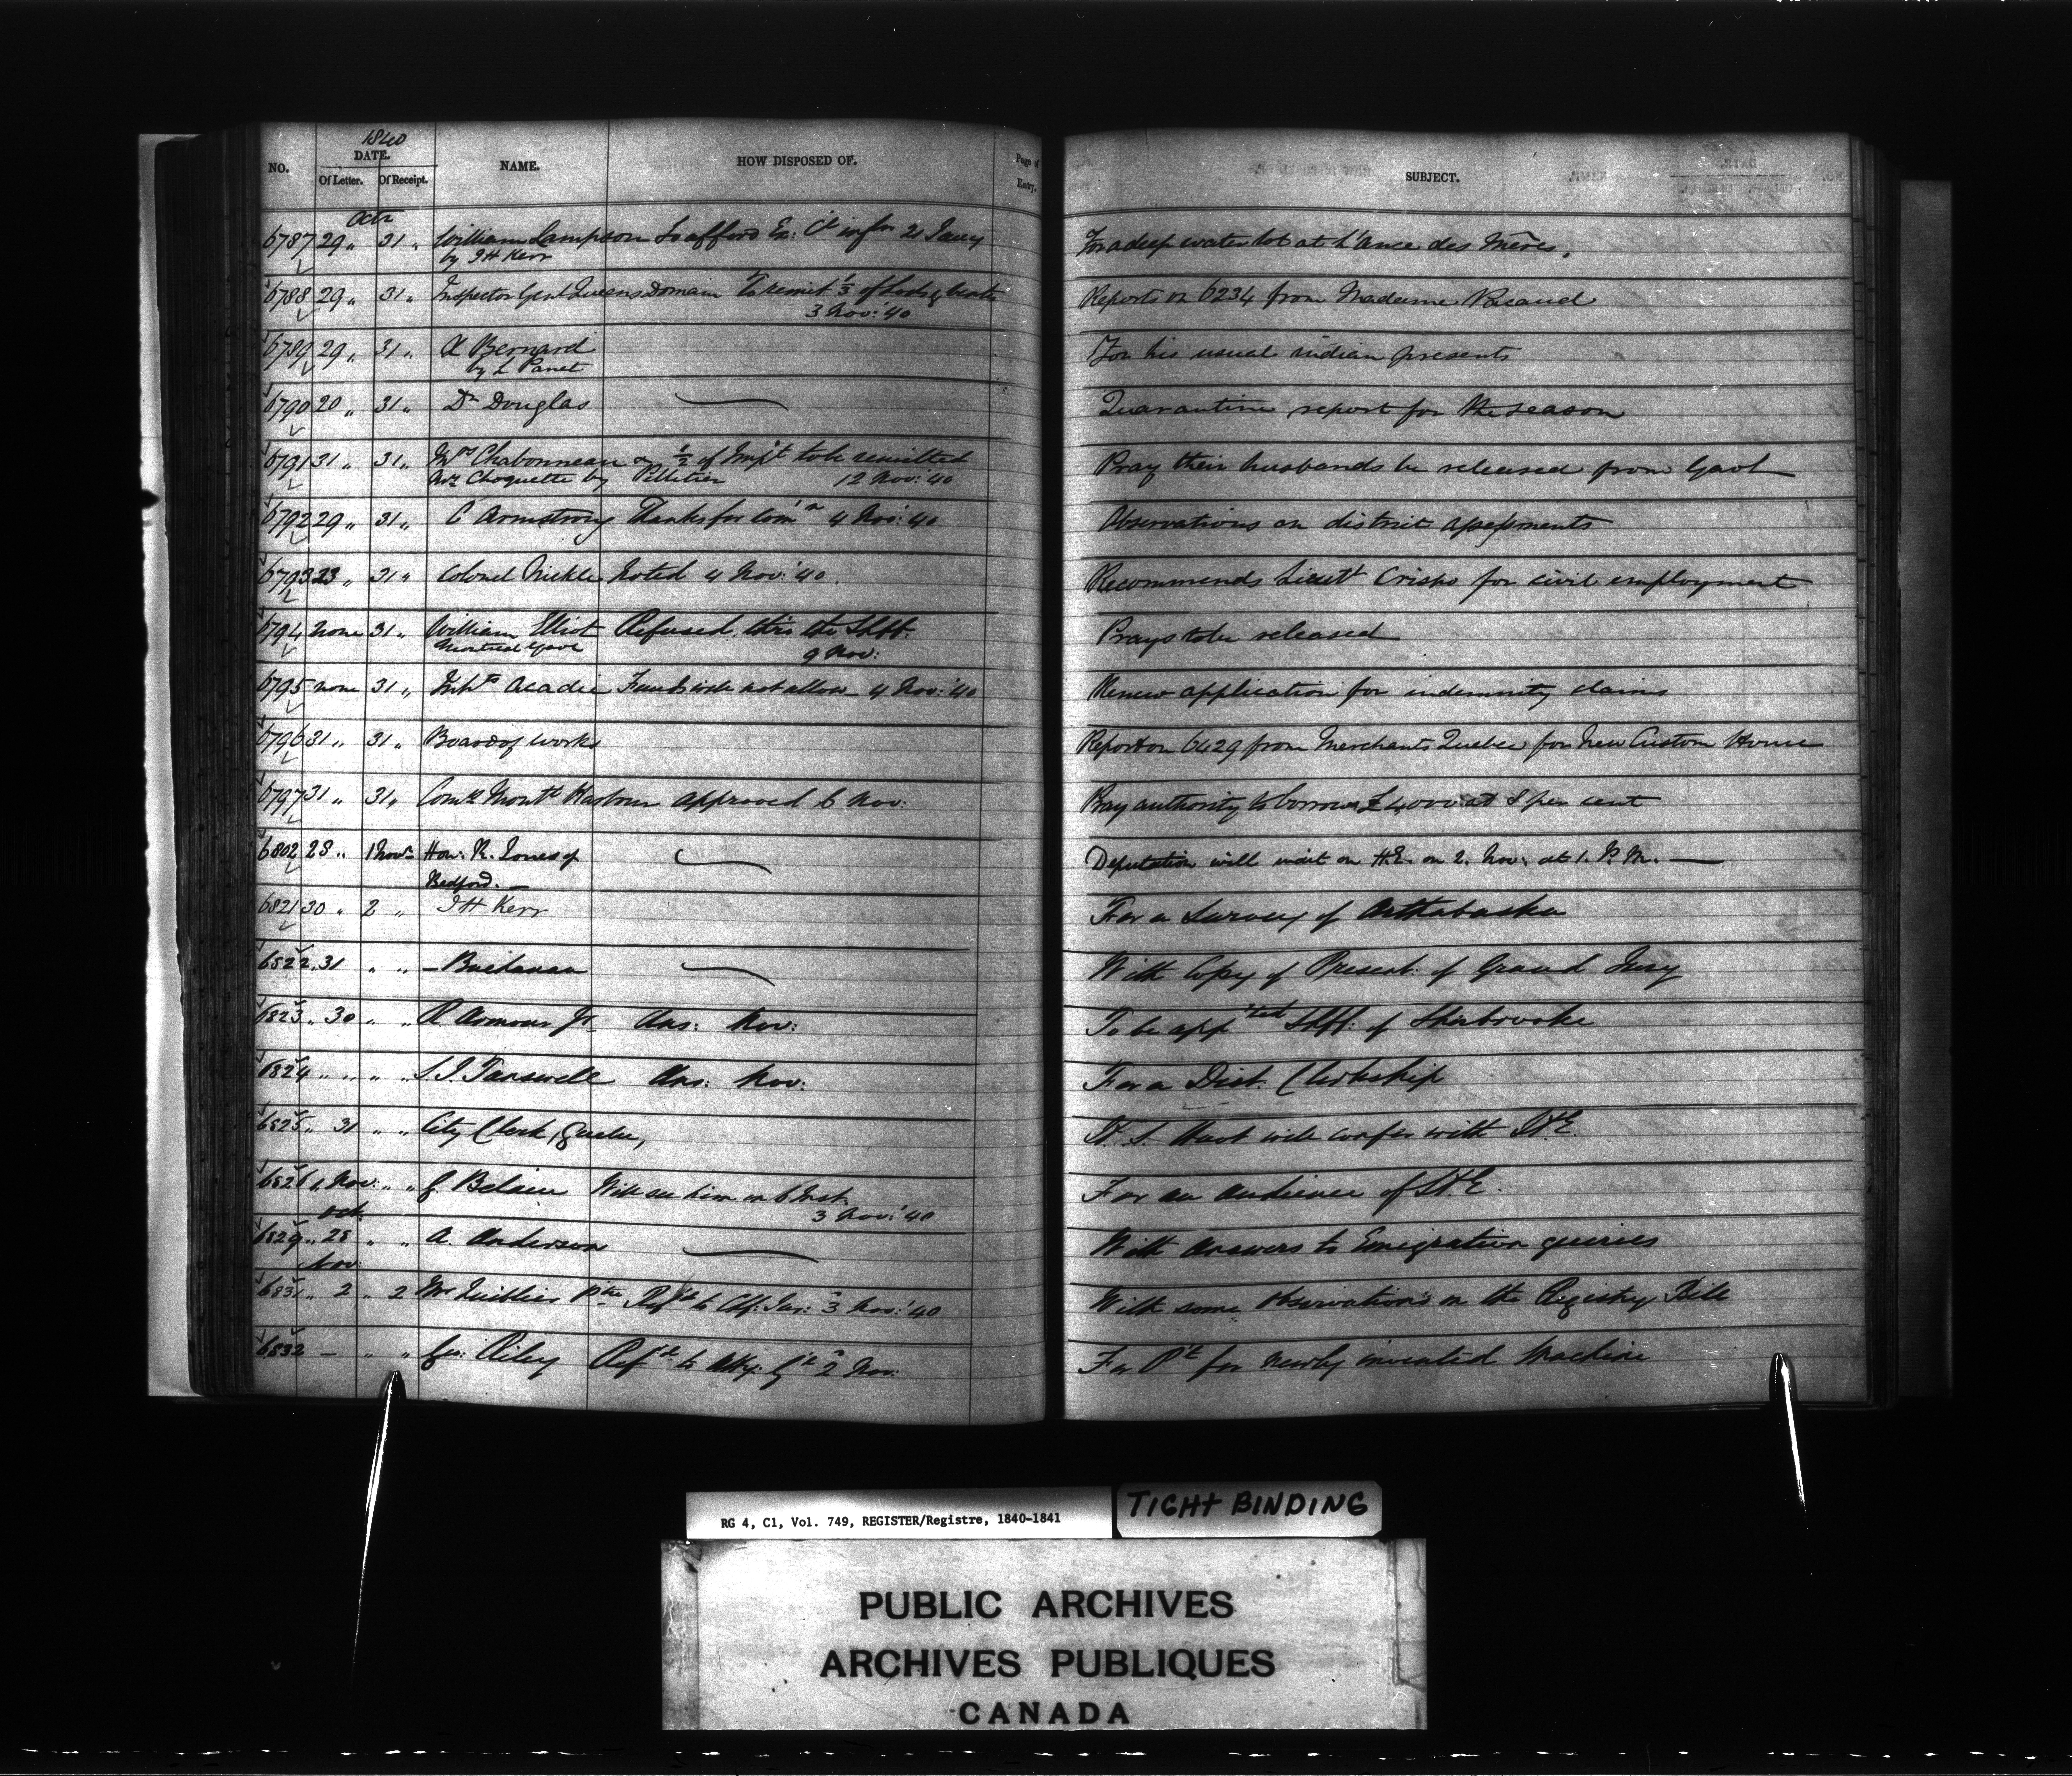 1840
NO. DATE. NAME. HOW DISPOSED OF. Page of Entry. SUBJECT.
Of Letter. Of Receipt.
Octr
6787 29 „ 31 „ William Lampson Ex: Cl 21 Jany For a deep water lot at L'Ance des Mères,
by J H Kerr
6788 29 „ 31 „ Inspector Genl Queens Domain To remit 1/3 of Lods & Ventes Reports on 6234 from Madame
3 Nov: '40
6789 29 „ 31 „ X Bernard For his usual indian presents
by L Panet
6790 20 „ 31 „ Dr Douglas Quarantine report for the season
6791 31 „ 31 „ Mrs Chabonneau & 1/2 of Impt to be remitted Pray their husbands be released from Gaol
Mrs Choquette by Pelletier 12 Nov: '40
6792 29 „ 31 „ C Armstrong Thanks for Com'n 4 Nov: '40 Observations on district assessments
6793 23 „ 31 „ Colonel Nickle Noted 4 Nov: '40. Recommends Lieutt Crispo for civil employment
6794 none 31 „ William Elliot Refused thro the Shff. Prays to be released
Montreal Gaol 9 Nov:
6795 none 31 „ Inhts Acadie Funds will not allow 4 Nov: '40 Renew application for indemnity claims
6796 31 „ 31 „ Board of works Report on 6429 from Merchants Quebec for New Custom House
6797 31 „ 31 „ Comrs Montl Harbour approved 6 Nov: Pray authority to borrow £4000 at 8 per cent
6802 28 „ 1 Novr Hon: R. Jones of Deputation will wait on H.E. on 2. Nov. at 1. P. M. —
Bedford. —
6821 30 „ 2 „ J H Kerr For a Survey of Arthabaska
6822 31 „ „ — Buchanan With Copy of Present: of Grand Jury
6823 „ 30 „ „ R Armour Jr. Ans: Nov: To be app'ted Shff: of Sherbrooke
6824 „ „ „ „ S. J. Tanswell Ans: Nov: For a Dist. Clerkship
6825 „ 31 „ „ City Clerk, Quebec, H. S. Huot will confer with H.E.
6826 1 Nov: „ „ will see him on 6 Inst. For an audience of H.E.
3 Nov: '40
Oct.
6829 „ 28 „ „ A. Anderson With Answers to Emigration queries
Nov:
6831 „ 2 „ 2 Mr Quiblier Ptre Refd to Chf: Jus: 3 Nov: '40 With some Observations on the Registry Bill
6832 — „ „ Geo: Riley Refd to Atty: Gl 2 Nov: For Pt for newly invented Machine
RG 4, C1, Vol. 749, REGISTER/Registre, 1840-1841
TIGHT BINDING
PUBLIC ARCHIVES
ARCHIVES PUBLIQUES
CANADA